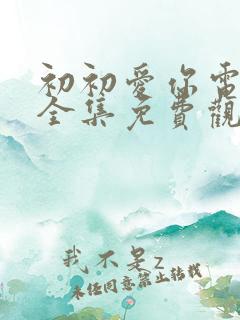 初初愛你電
全集免費觀
我不是z
未经同意禁止转载